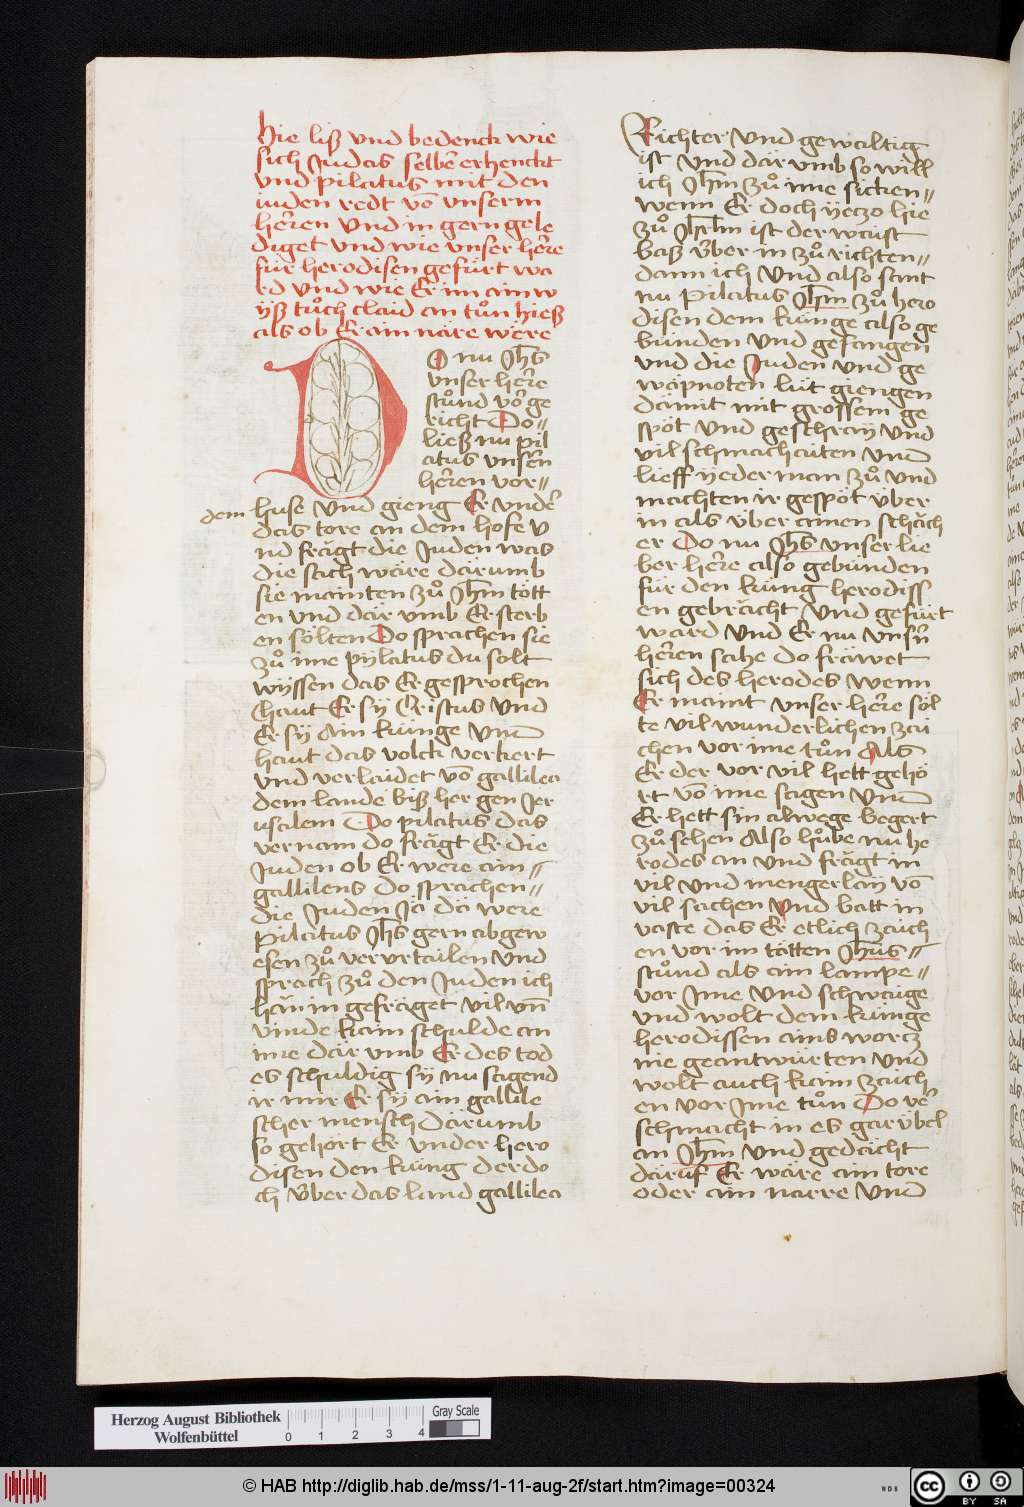 hie liß vnd bedenck wie
sich Judas selber erhenckt
vnd pilatus mit den
iuden redt vō vnserm
herren vnd in gern gele
diget vnd wie vnser herre
für herodisen gefürt wa
rd vnd wie Er im ain w
ÿß tůch claid an tůn hieß
als ob Er ain nare were
DO nu Jhs
vnser herre
stůnd vor ge
richt Do
ließ nu pil
atus vnsern
herren vor
dem huse vnd gieng Er vnder
das tore an dem hofe v
nd frägt die Juden was
die sach wäre därumb
sie mainten zů Jhm tött
en vnd där vmb Er sterb
en sölten Do sprachen sie
zů ime pÿlatus du solt
wÿssen das Er gesprochen
haut Er sÿ Cristus vnd
Er sÿ Ain künge vnd
haut das volck verkert
vnd verlaidet vō gallilea
dem lande biß her gen Jer
usalem Do pilatus das
vernam do frägt Er die
Juden ob Er were ain
gallilens do sprachen
die Juden Jä dä were
Pilatus Jhs gern abgew
esen zů verurtailen vnd
sprach zů den Juden ich
hän in gefräget vil vn̄
vinde kain schulde an
ime där vmb Er des tod
es schuldig sÿ nu sagend
ir mir Er sÿ ain gallile
scher mensch därumb
so gehört Er vnder hero
disen den küng der do
ch v̈ber das land gallilea
Richter vnd gewaltig
ist vnd där vmb so will
ich Jhm zů ime sicken
wenn Er doch ÿeczo hie
zů Jhrlm ist der waist
baß v̈ber in zů richten
dann ich vnd also sant
nu Pilatus Jhm zů hero
disen dem künge also ge
bunden vnd gefangen
vnd die Juden vnd ge
wäpnoten lüt giengen
dämit mit grossem ge
spöt vnd geschraÿ vnd
vil schmachaiten vnd
lieff ÿeder man zů vnd
machten ir gespöt v̈ber
in als v̈ber ainen schäch
er Do nu Jhs vnser lie
ber herre also gebunden
für den küng herodiss
en gebrächt vnd gefürt
ward vnd Er nu vnsern
herren sahe do fräwet
sich des herodes wenn
Er maint vnser herre söl
te vil wunderlichen zai
chen vor ime tůn Als
Er der vor vil hett gehö
rt vō ime sagen vnd
Er hett sin alwege begert
zů sehen Also hůbe nu he
rodes an vnd frägt in
vil vnd mengerlaÿ vō
vil sachen vnd batt in
vaste das Er etlich zaich
en vor im tätten Jhus
stůnd als ain lampe
vor Jme vnd schwaige
vnd wolt dem künge
herodissen ains worcz
nie geantwürten vnd
wolt auch kain zaich
en vor Jme tůn Do ver
schmacht in es gar v̈bel
an Jhm vnd gedächt
däruf Er wäre ain tore
oder ain narre vnd
Herzog August Bibliothek
Wolfenbüttel
0 1 2 3 4
Gray Scale
© HAB http://diglib.hab.de/mss/1-11-aug-2f/start.htm?image=00324
WDB
cc BY SA